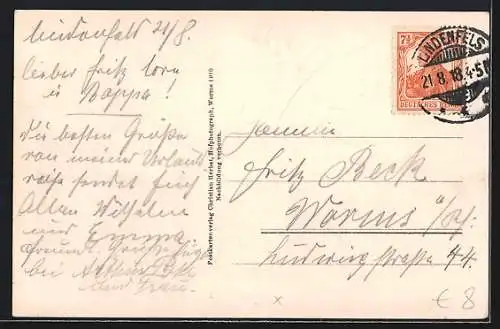 Lindenfels 21/8.
Lieber Fritz
u Bappa!
Die besten Grüße
von meiner Urlaubs
reise sendet Euch
Allen Wilhelm
und Emma
bei
und Frau.
Postkartenverlag Christian Herbst, Hofphotograph, Worms (
Nachbildung verboten.
7½
DEUTSCHES REICH
LINDENFELS
21.8.18.4-5
Familie
Fritz Beck
Worms a/Rh.
Ludwigstraße 44.
x
€ 8